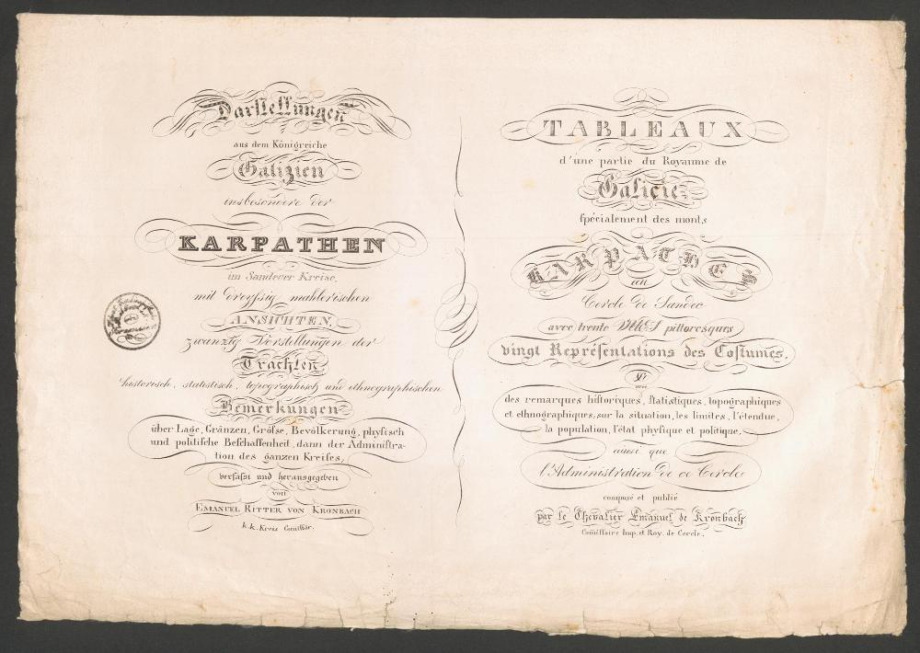 Darstellungen
aus dem Königreiche
Galizien
insbesondere der
KARPATHEN
im Sandecer Kreise,
mit dreyssig mahlerischen
ANSICHTEN,
zwanzig Vorstellungen der
Trachten
historisch, statistisch, topographisch und ethnographischen
Bemerkungen
über Lage, Gränzen, Größe, Bevölkerung, physisch
und politische Beschaffenheit, dann der Administra-
tion des ganzen Kreises,
verfaßt und herausgegeben
von
EMANUEL RITTER VON KRONBACH
k.k. Kreis
TABLEAUX
d'une partie du Royaume de
Galicie,
spécialement des monts
KARPATHES
au
Cercle de Sandec
avec trente VUES pittoresques
vingt Représentations des Costumes,
et
des remarques historiques, statistiques, topographiques
et ethnographiques, sur la situation, les limites, l'étendue,
la population, l'état physique et politique,
ainsi que
l'Administration de ce Cercle
composé et publié
par le Chevalier Emanuel de Kronbach
Conseillaire Imp. et Roy. de Cercle,